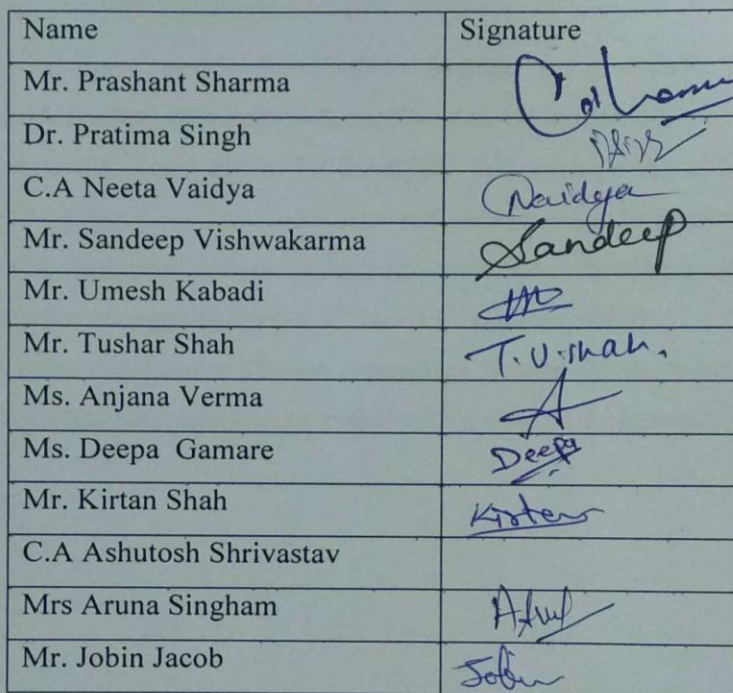 Name Signature
Mr. Prashant Sharma
Dr. Pratima Singh
C.A Neeta Vaidya Nvaidya
Mr. Sandeep Vishwakarma Sandeep
Mr. Umesh Kabadi
Mr. Tushar Shah T.U.shah.
Ms. Anjana Verma A
Ms. Deepa Gamare Deepa
Mr. Kirtan Shah Kirtan
C.A Ashutosh Shrivastav
Mrs Aruna Singham
Mr. Jobin Jacob Jobin